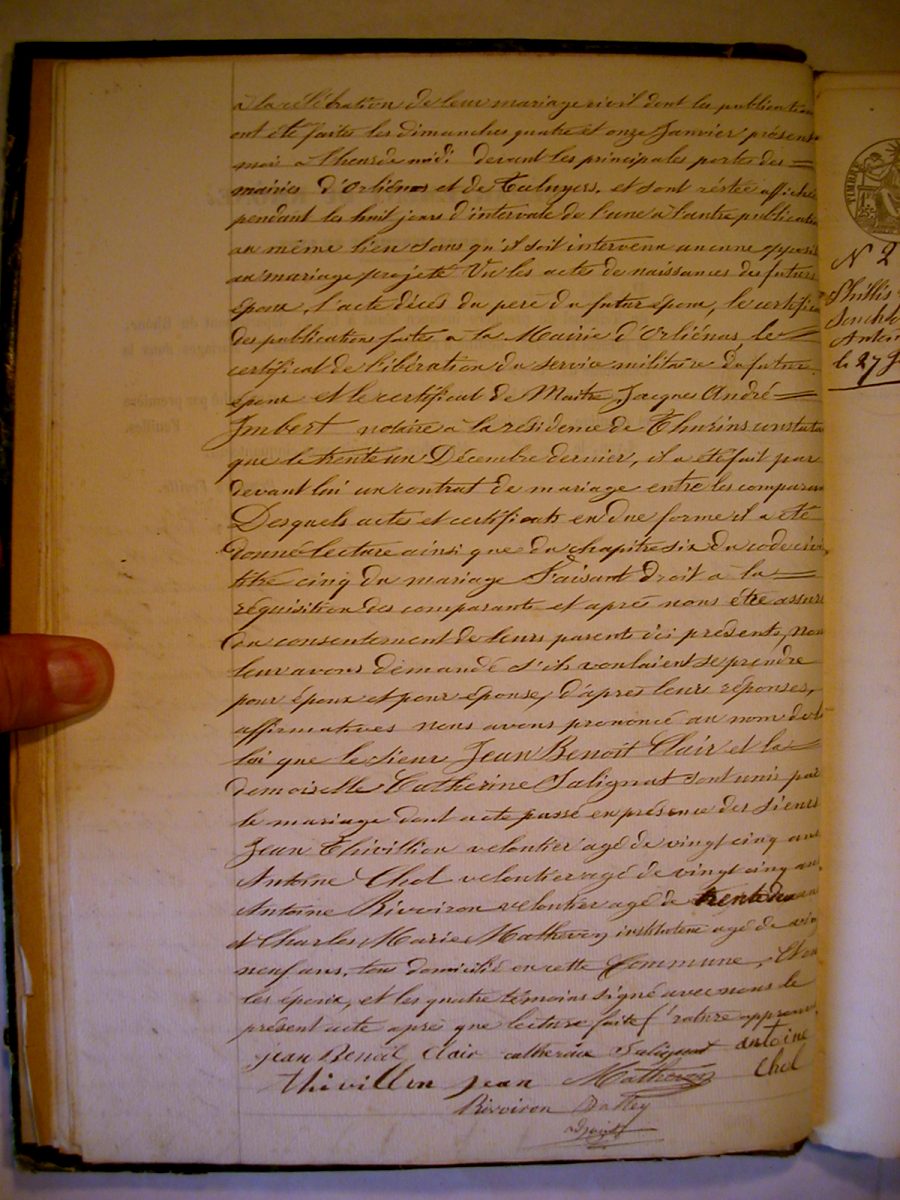 à la célébration de leur mariage civil dont les publications
ont été faites les dimanches quatre et onze Janvier présent
mois à l'heure de midi devant les principales portes des =
mairies d'Orliénas et de Taluyers, et sont réstée affichée
pendant les huit jours d'intervale de l'une à l'autre publication
au même lieu sans qu'il soit intervenu aucune opposit
au mariage projeté Vu les actes de naissances des futurs
époux, l'acte décès du père du futur époux, le certificat
des publications faites à la Mairie d'Orliénas, le =
certificat de libération du service militaire du futur
époux et le certificat de Maitre Jacques André =
Imbert notaire à la résidence de Thurins constatant
que le trente un Décembre dernier, il a été fait par
devant lui un contrat de mariage entre les comparan
Desquels actes et certificats en due forme il a été
donné lecture ainsi que du chapitre six du code civil
titre cinq du mariage Faisant droit à la =
réquisition des comparants et après nous être assuré
du consentement de leurs parents ici présents, Nous
leur avons demandé s'ils voulaient se prendre
pour époux et pour épouse, d'après leurs réponses,
affirmatives nous avons prononcé au nom de la
loi que le sieur Jean Benoit Clair et la =
demoiselle Catherine Salignat sont unis par
le mariage dont acte passé en présence des sieurs
Jean Thivillion veloutier agé de vingt cinq ans
Antoine Chol veloutier agé de vingt cinq ans
Antoine Rivoiron veloutier agé de trente deux ans
et Charles Marie Mathevon instituteur agé de vingt
neuf ans, tous domicilié en cette Commune, Et ont
les époux, et les quatre témoins signé avec nous le
présent acte après que lecture faite rature approuvé
jean Benoit Clair catherine Salignat antoine
thivillon jean Mathevon Chol
Rivoiron
TIMBRE
N 2
Phillis
Antoi
le 27 J